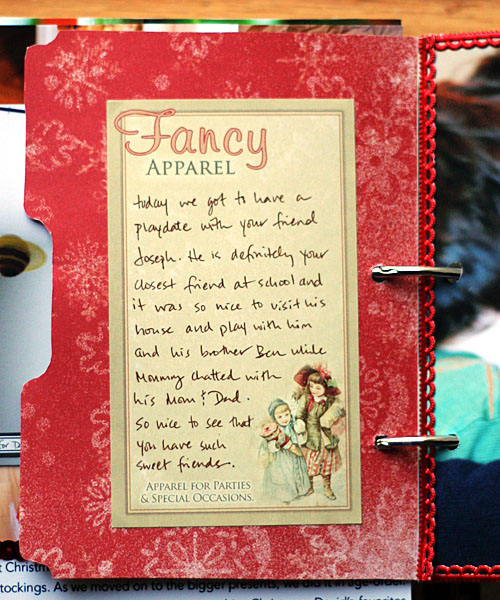 Fancy
APPAREL
today we got to have a
playdate with your friend
Joseph. He is definitely your
closest friend at school and
it was so nice to visit his
house and play with him
and his brother Ben while
Mommy chatted with
his Mom & Dad.
So nice to see that
you have such
sweet friends.
APPAREL FOR PARTIES
& SPECIAL OCCASIONS.
for D
t Christm
tockings. As we moved on to the bigger presents, we did it